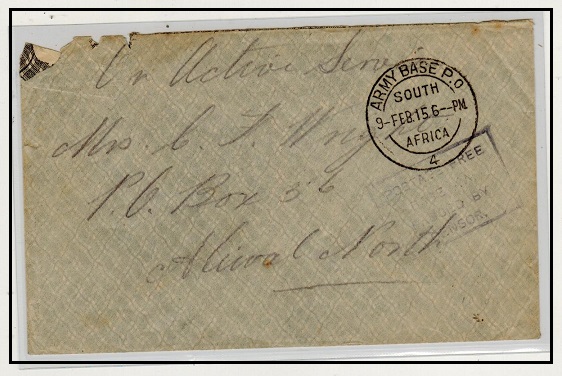 On Active Service
Mrs C. F.
P.O. Box 56
Aliwal North
ARMY BASE P.O
SOUTH
9-FEB.15.6--PM.
AFRICA
4
FREE
BY